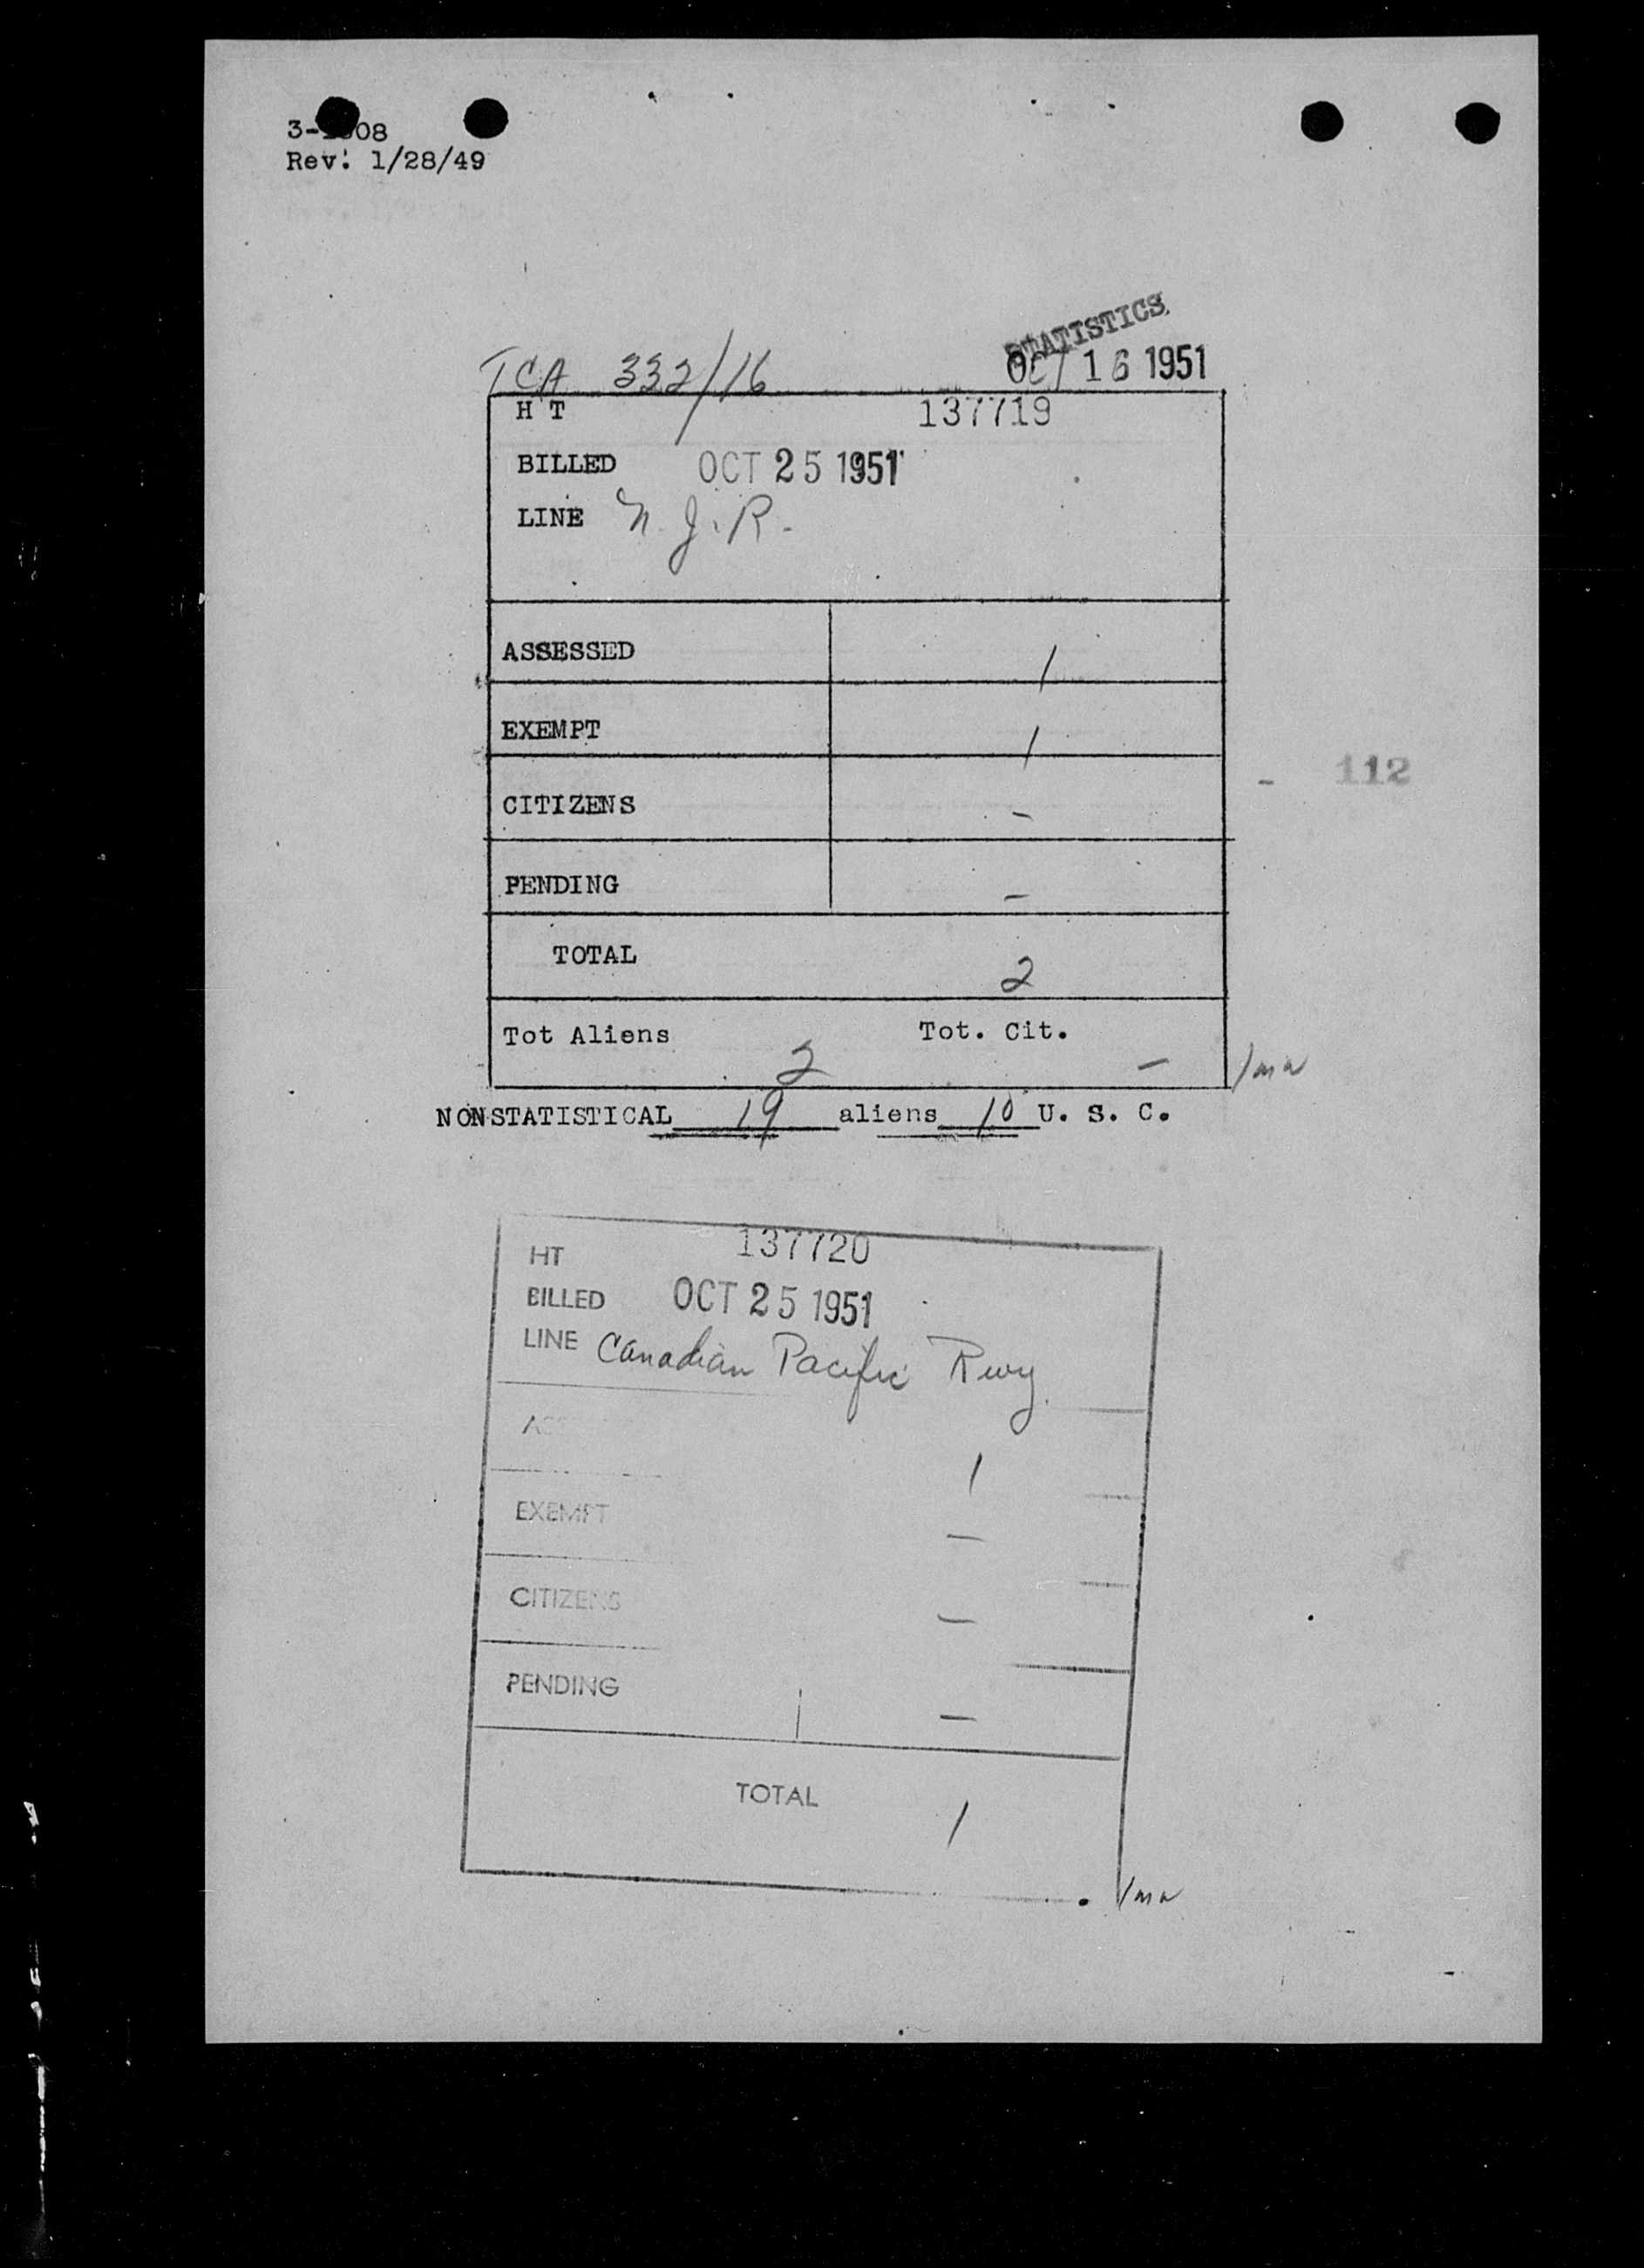 Rev. 1/28/49
STATISTICS
TCA 332/16 OCT 16 1951
HT 137719
BILLED OCT 25 1951
LINE N. J. R.
ASSESSED 1
EXEMPT 1
CITIZENS -
- 112
PENDING -
TOTAL 2
Tot Aliens 2 Tot. Cit. -
NONSTATISTICAL 19 aliens 10 U. S. C.
HT 137720
BILLED OCT 25 1951
LINE Canadian Pacific Rwy.
1
EXEMPT -
CITIZENS -
PENDING -
TOTAL 1